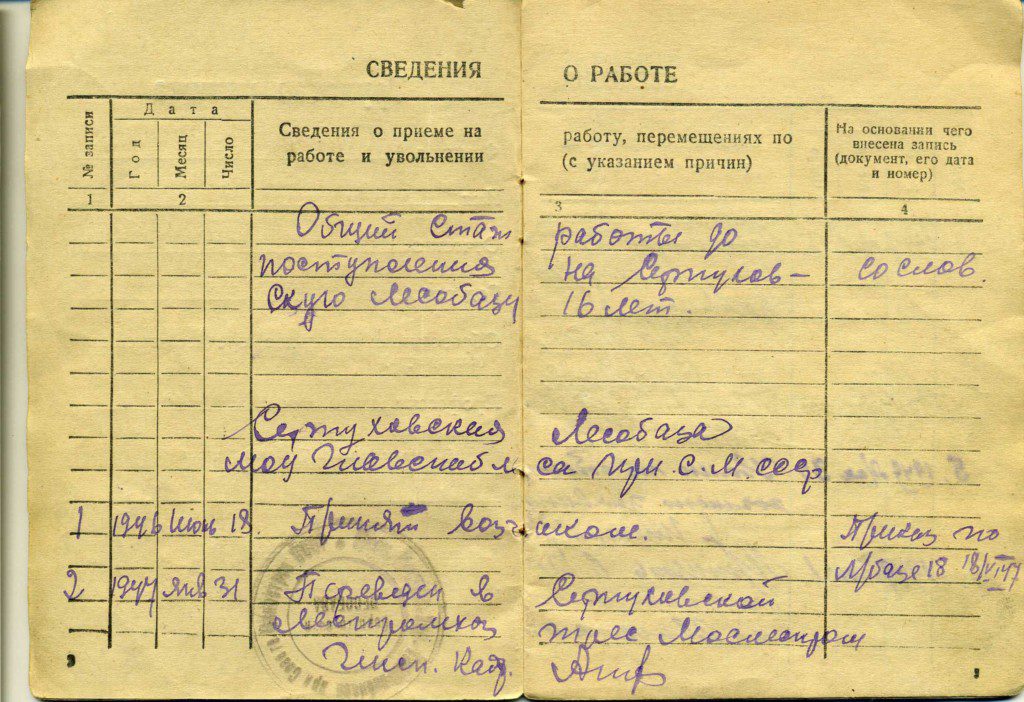 СВЕДЕНИЯ О РАБОТЕ
№ записи
Дата
Год
Месяц
Число
Сведения о приеме на работу, перемещениях по
работе и увольнении (с указанием причин)
На основании чего
внесена запись
(документ, его дата
и номер)
1 2 3 4
Общий стаж работы до
поступления на Серпухов- со слов.
скую Лесобазу 16 лет.
Серпуховская Лесобаза
Главснаблеса при С.М. СССР
1 1946 Июнь 18. Принят возчиком. Приказ по
л/базе 18 18/VI 47
2 1947 янв 31 Переведен в Серпуховской
Леспромхоз трес
Инсп. Кадр.